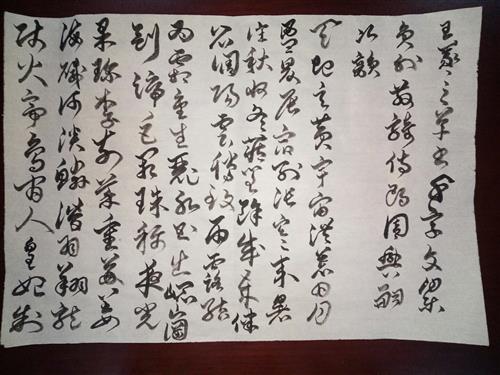 王羲之草書千字文梁
員外散騎侍郎周興嗣
次韻
天地玄黃宇宙洪荒日月
盈昃辰宿列張寒來暑
往秋收冬藏閏餘成歲律
呂調陽雲騰致雨露結
為霜金生麗水玉出崑崗
劍號巨闕珠稱夜光
果珍李柰菜重芥薑
海鹹河淡鱗潛羽翔龍
師火帝鳥官人皇始制